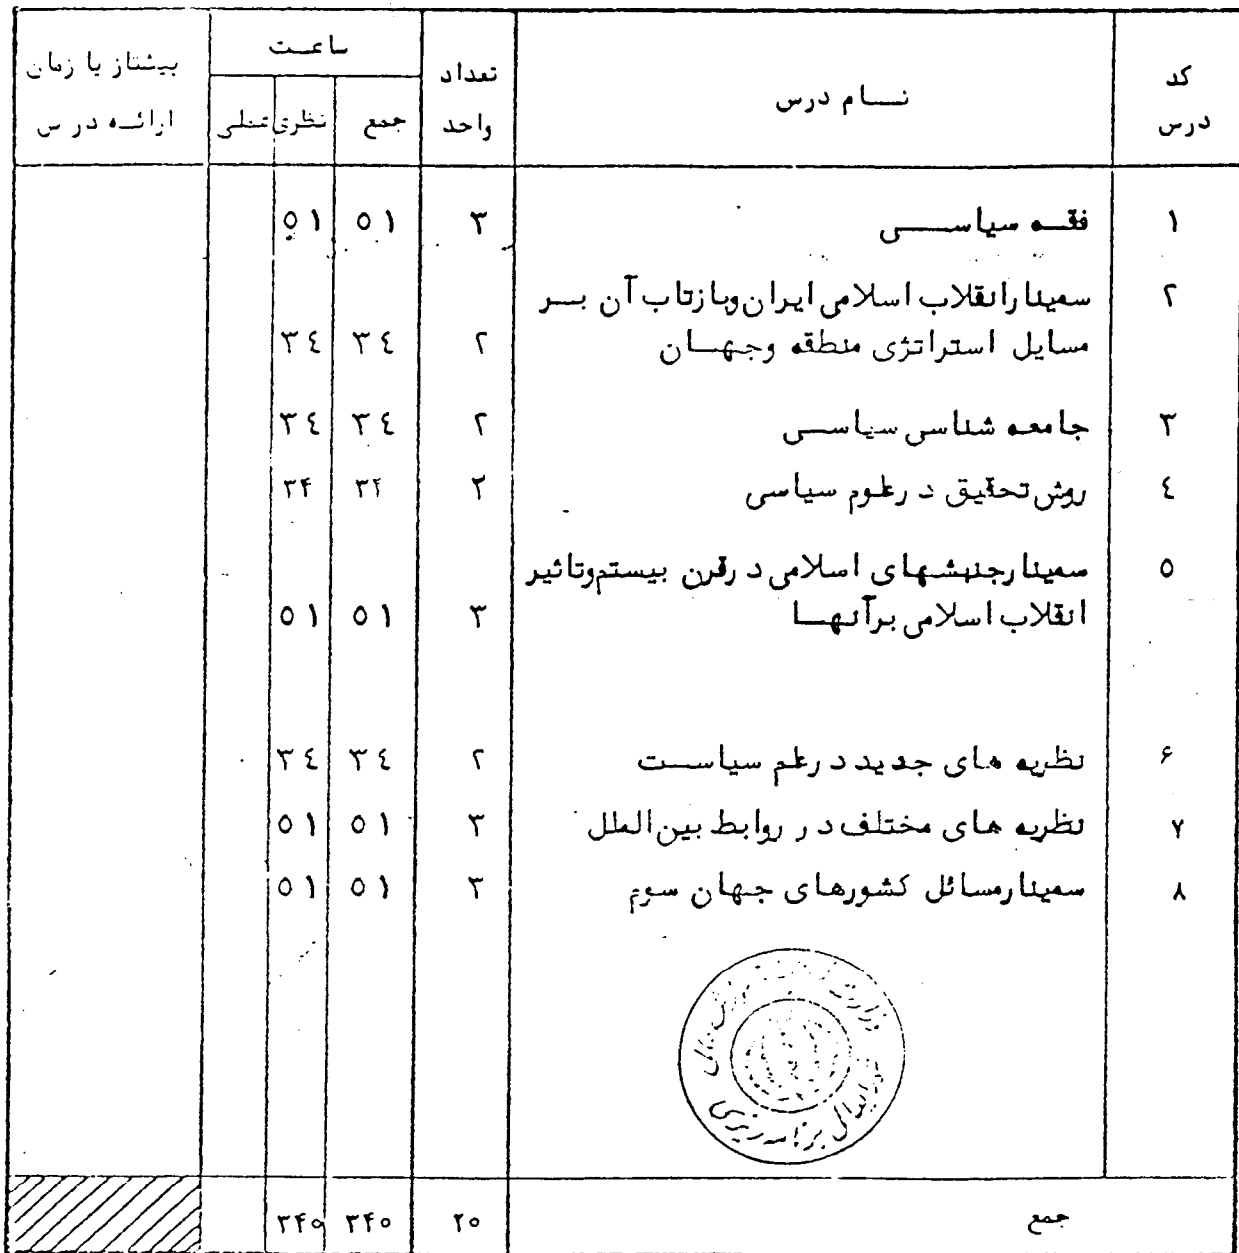 کد درس | نام درس | تعداد واحد | ساعت: جمع | نظری | عملی | پیشنیاز یا زمان ارائه درس
۱ | فقه سیاسی | ۳ | ۵۱ | ۵۱
۲ | سمینار انقلاب اسلامی ایران و بازتاب آن بر
مسایل استراتژی منطقه و جهان | ۲ | ۳۴ | ۳۴
۳ | جامعه شناسی سیاسی | ۲ | ۳۴ | ۳۴
۴ | روش تحقیق در علوم سیاسی | ۲ | ۳۴ | ۳۴
۵ | سمینار جنبشهای اسلامی در قرن بیستم و تاثیر
انقلاب اسلامی بر آنها | ۳ | ۵۱ | ۵۱
۶ | نظریه های جدید در علم سیاست | ۲ | ۳۴ | ۳۴
۷ | نظریه های مختلف در روابط بین الملل | ۳ | ۵۱ | ۵۱
۸ | سمینار مسائل کشورهای جهان سوم | ۳ | ۵۱ | ۵۱
وزارت
عالی برنامه ریزی
جمع | ۲۰ | ۳۴۰ | ۳۴۰